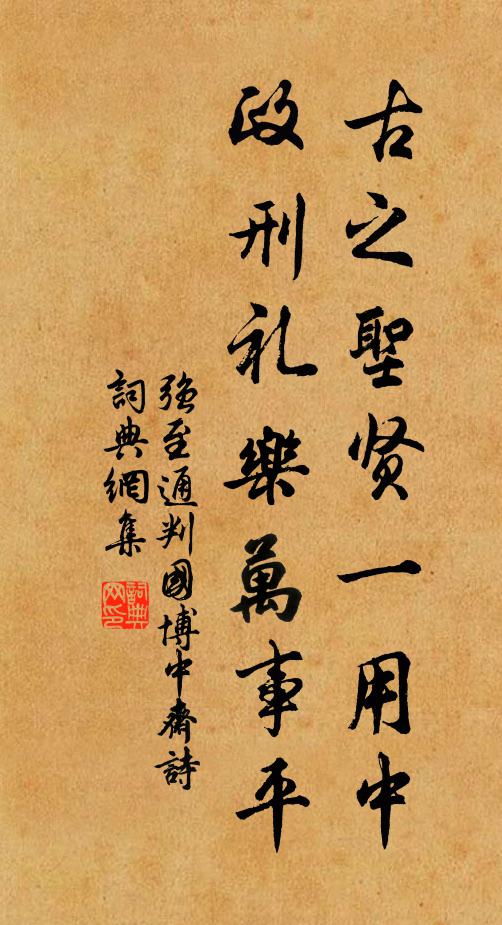 古之聖贤一用中
政刑礼樂萬事平
強至通判國博中齋詩
詞典網集
詞典网印